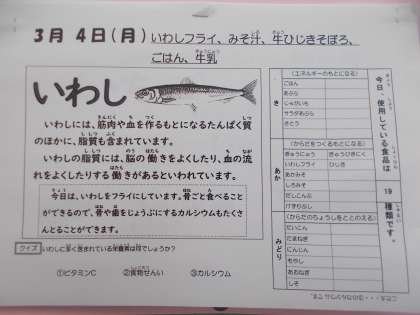 3月 4日(月) いわしフライ、みそ汁、牛ひじきそぼろ、
ごはん、牛乳
いわし
いわしには、筋肉や血を作るもとになるたんぱく質
のほかに、脂質も含まれています。
いわしの脂質には、脳の働きをよくしたり、血の流
れをよくしたりする働きがあるといわれています。
今日は、いわしをフライにしています。骨ごと食べること
ができるので、骨や歯をじょうぶにするカルシウムもたくさ
んとることができます。
クイズ いわしに多く含まれている栄養素は何でしょうか?
①ビタミンC ②食物せんい ③カルシウム
今日、使用している食品は
19
種類です。
き
(エネルギーのもとになる)
ごはん
あぶら
じゃがいも
サラダあぶら
さとう
あか
(からだをつくるもとになる)
ぎゅうにゅう ぎゅうひきにく
いわしフライ ひじき
あかみそ
しろみそ
だしこんぶ
けずりぶし
みどり
(からだのちょうしをととのえる)
だいこん
たまねぎ
にんじん
もやし
あおねぎ
しそ